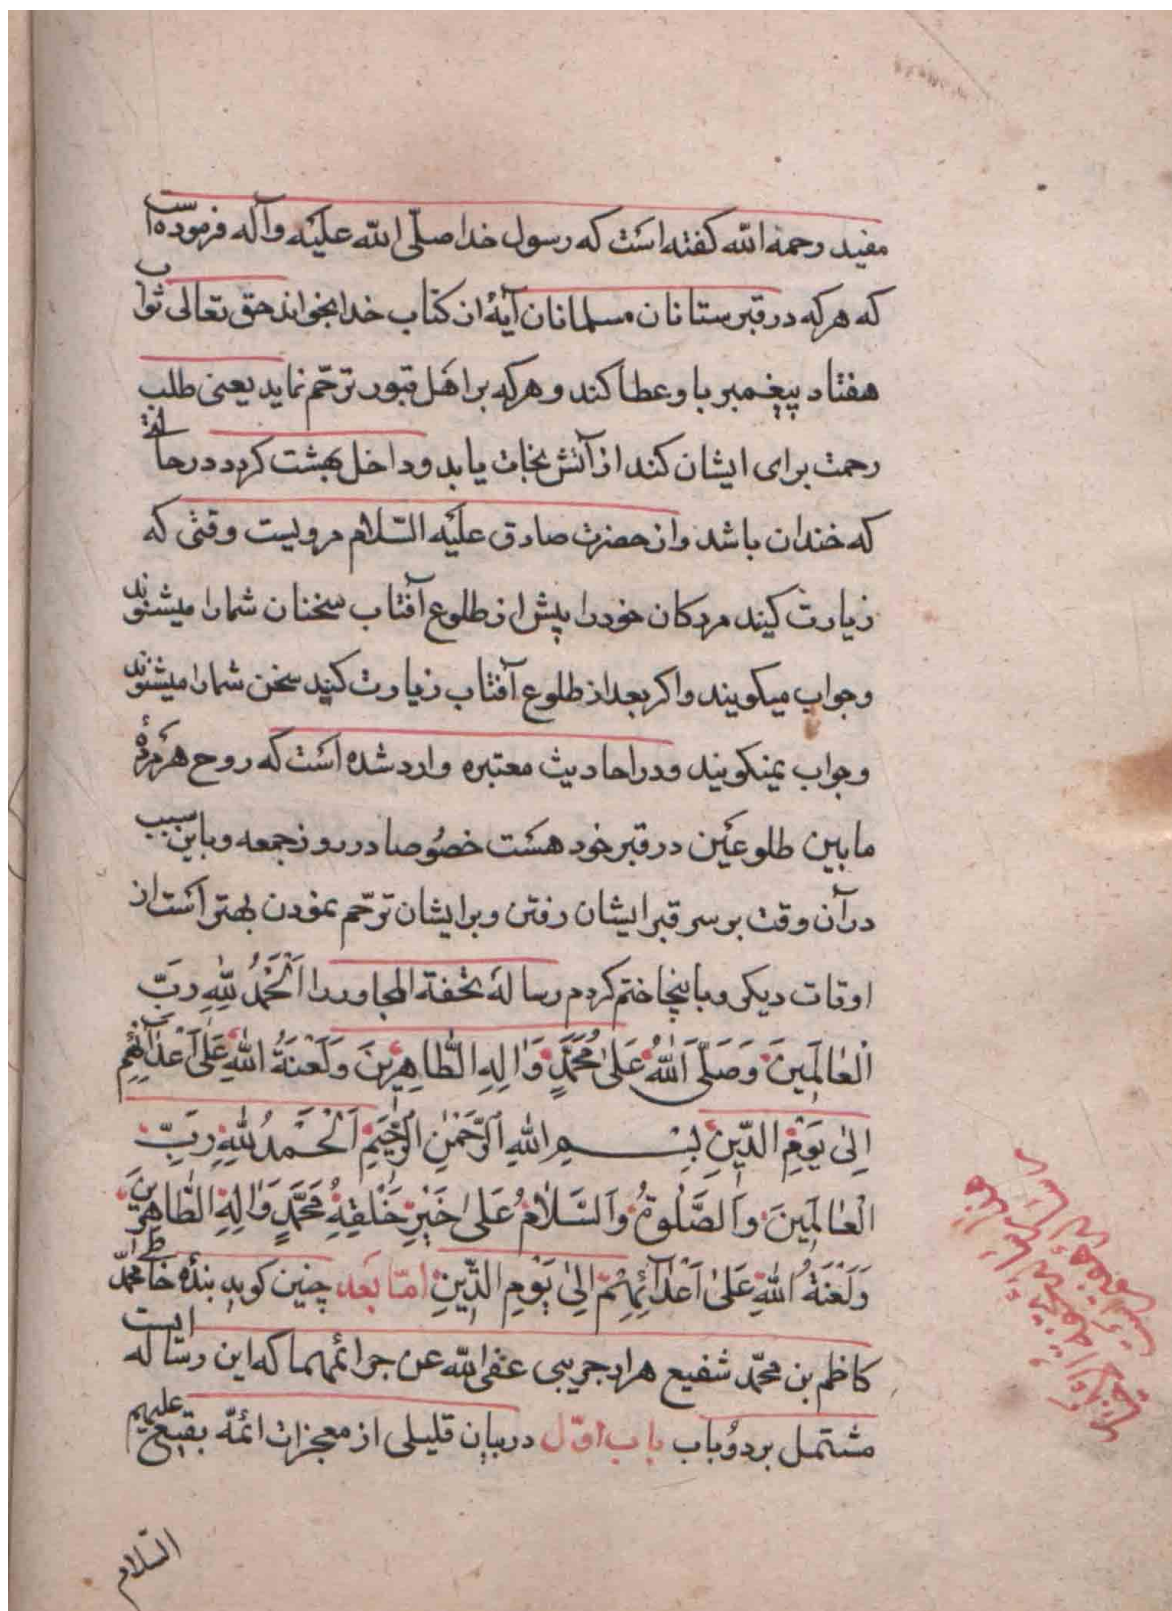 مفید رحمه الله کفته است که رسول خدا صلّی الله علیه وآله فرموده است
که هرکه در قبرستانان مسلمانان آیهٔ از کتاب خدا بخواند حق تعالی ثواب
هفتاد پیغمبر باو عطا کند و هرکه بر اهل قبور ترحّم نماید یعنی طلب
رحمت برای ایشان کند از آتش نجات یابد و داخل بهشت کردد در حالتی
که خندان باشد و از حضرت صادق علیه السّلام مرویست وقتی که
زیارت کیند مردکان خود را پیش از طلوع آفتاب سخنان شما را میشنوند
وجواب میکویند واکر بعد از طلوع آفتاب زیارت کنید سخن شما را میشنوند
وجواب نمیکویند ودر احادیث معتبره وارد شده است که روح هر مردهٔ
مابین طلوعین در قبر خود هست خصوصا در روز جمعه وباین سبب
در آن وقت بر سر قبر ایشان رفتن وبر ایشان ترحّم نمودن بهتر است از
اوقات دیکی وباینجا ختم کردم رسالهٔ تحفة المجاور را اَلْحَمْدُ لِلّٰهِ رَبّ
الْعٰالَمِینَ وَصَلَّی اَللّٰهُ عَلیٰ مُحَمَّدٍ وَاٰلِهِ الطّٰاهِرِینَ وَلَعْنَةُ اللّٰهِ عَلیٰ اَعْدٰآئِهِمْ
اِلیٰ یَوْمِ الدّینِ بِسْمِ اللّٰهِ الرَّحْمٰنِ الرَّحیمِ اَلْحَمْدُ لِلّٰهِ رَبِّ
الْعٰالَمِینَ وَالصَّلٰوةُ وَالسَّلٰامُ عَلیٰ خَیْرِ خَلْقِهِ مُحَمَّدٍ وَاٰلِهِ الطّٰاهِرِینَ
وَلَعْنَةُ اللّٰهِ عَلیٰ اَعْدٰآئِهِمْ اِلیٰ یَوْمِ الدِّینِ امّا بَعد چنین کوید بندهٔ خاطی محمّد
کاظم بن محمّد شفیع هزارجریبی عفی الله عن جرائمهما که این رساله ایست
مشتمل بر دو باب باب اوّل در بیان قلیلی از معجزات ائمّه بقیع علیهم
السّلام